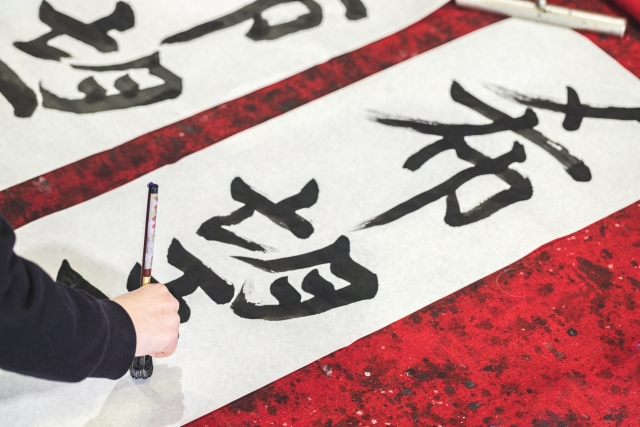 希望
希望